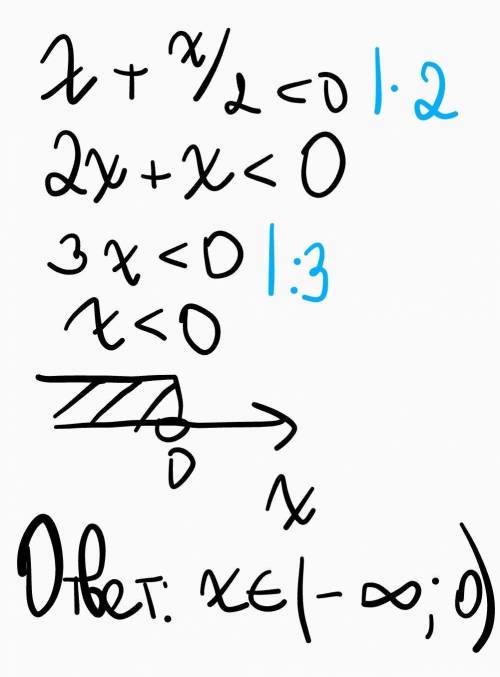 x + x/2 < 0 |· 2
2x + x < 0
3x < 0 |:3
x < 0
0
x
Ответ: x∈(-∞; 0)